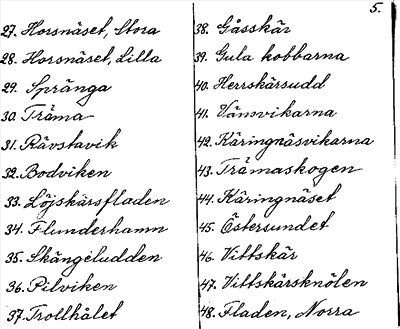 5.
27. Horsnäset, Stora
28. Horsnäset, Lilla
29. Spränga
30. Träma
31. Rävstavik
32. Bodviken
33. Löjskärsfladen
34. Flunderhamn
35. Skångeludden
36. Pilviken
37. Trollhålet
38. Gåsskär
39. Gula kobbarna
40. Herrskärsudd
41. Vämvikarna
42. Käringnäsvikarna
43. Trämaskogen
44. Käringnäset
45. Östersundet
46. Vittskär
47. Vittskärsknölen
48. Fladen, Norra